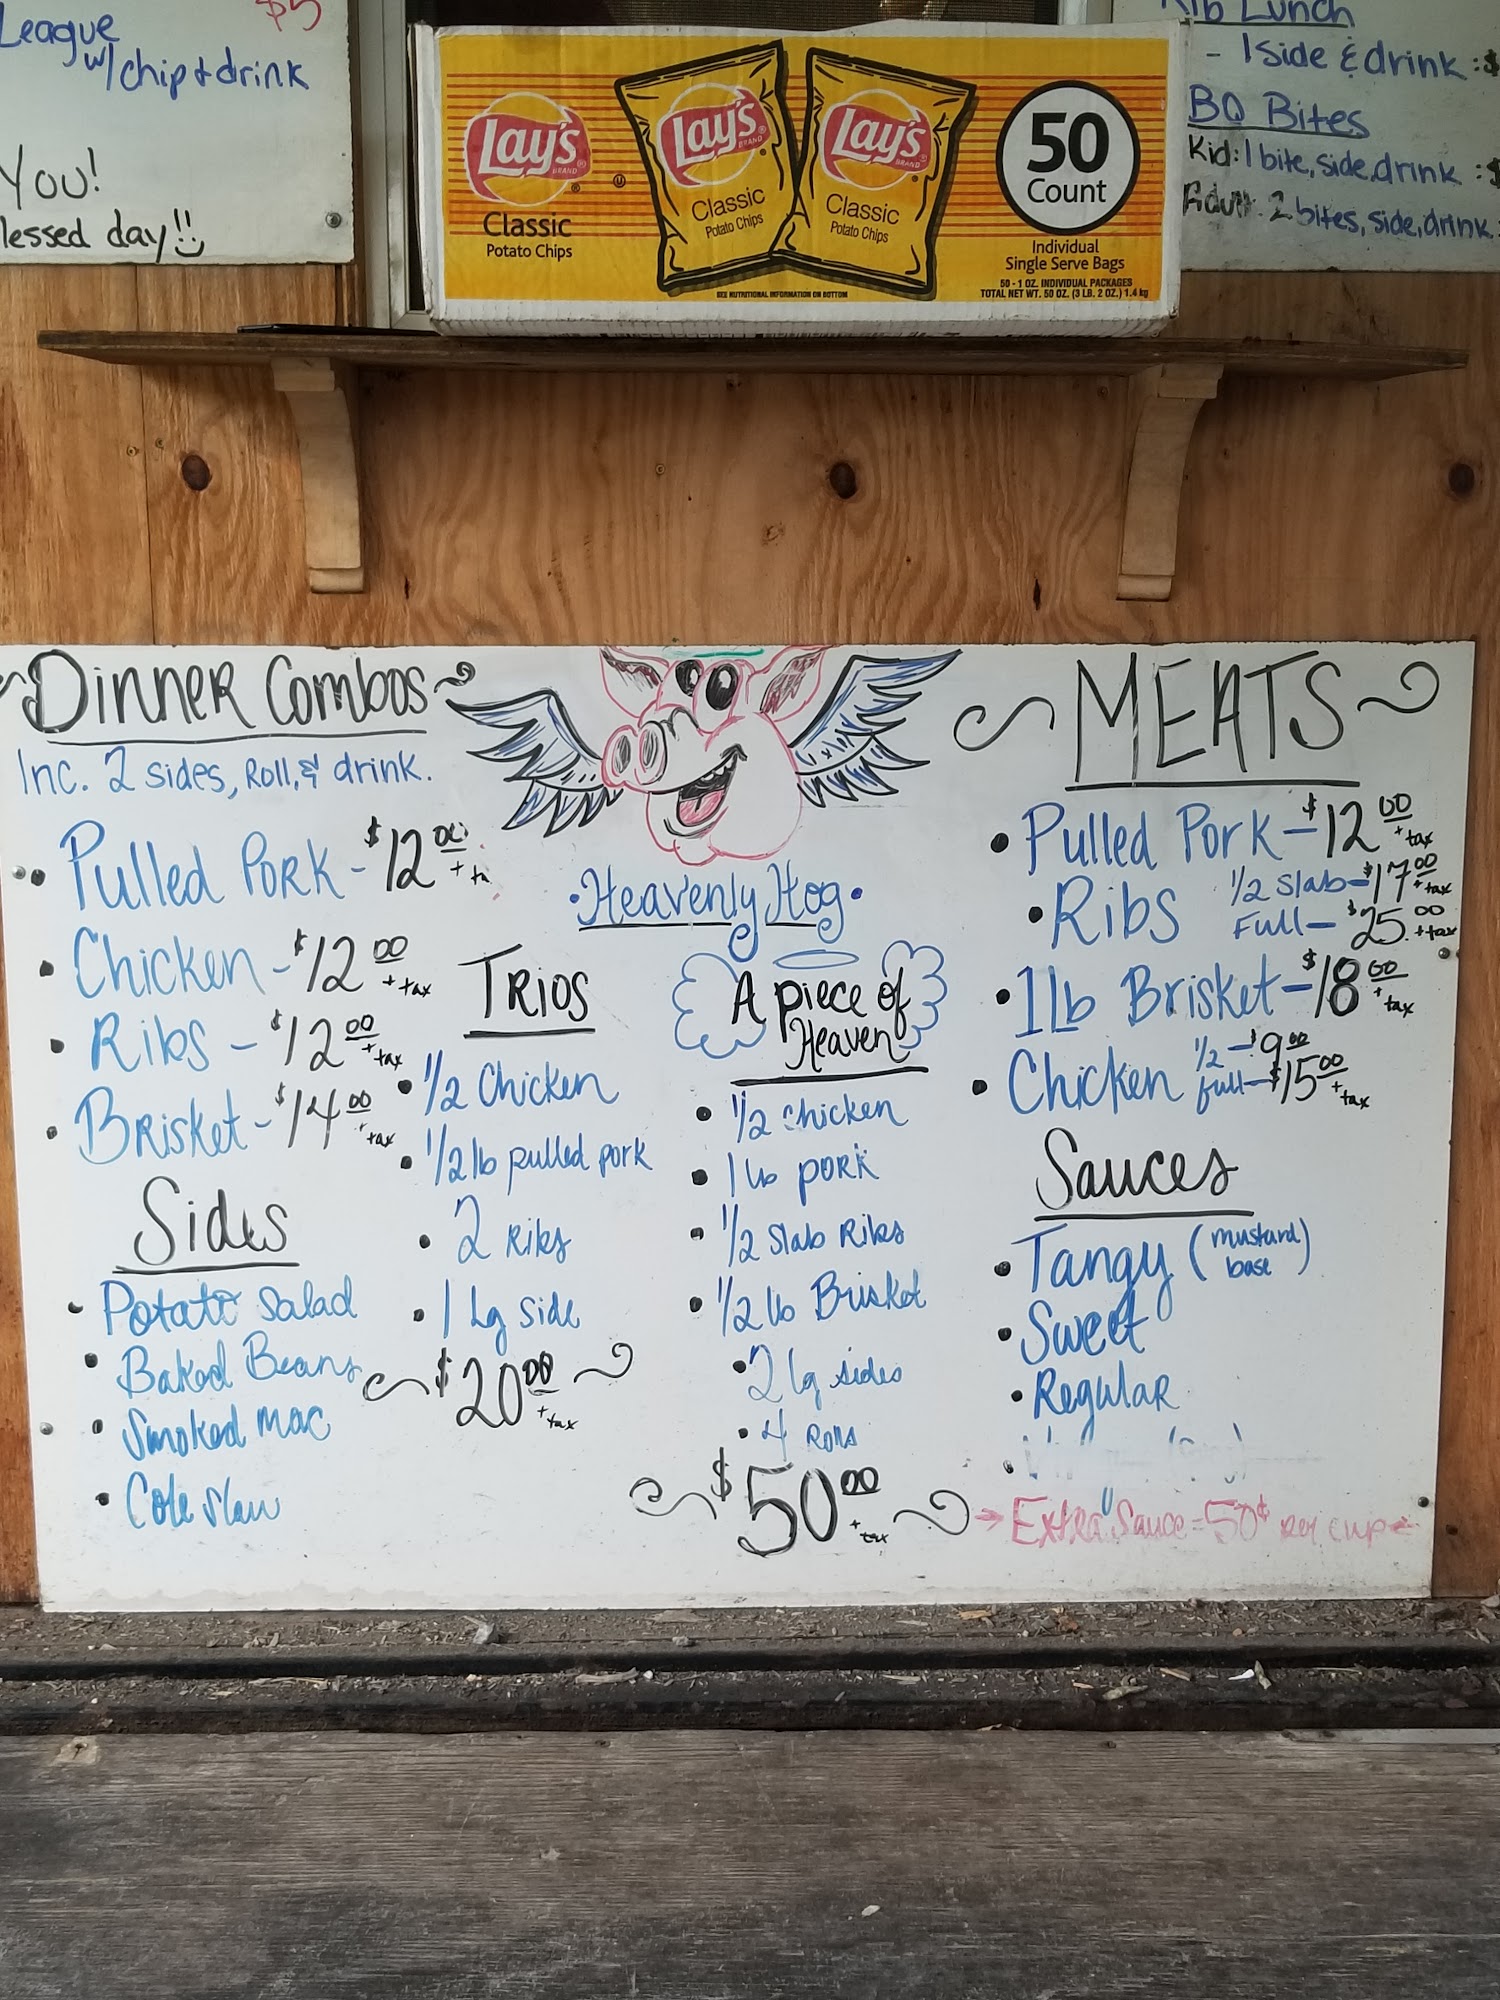 League $5
w/ chip & drink
You!
lessed day!!
Lay's
BRAND
Classic
Potato Chips
Lay's
BRAND
Classic
Potato Chips
Lay's
BRAND
Classic
Potato Chips
50
Count
Individual
Single Serve Bags
50 - 1 OZ. INDIVIDUAL PACKAGES
TOTAL NET WT. 50 OZ. (3 LB. 2 OZ.) 1.4 kg
SEE NUTRITIONAL INFORMATION ON BOTTOM
Rib Lunch
- 1 side & drink : $
BQ Bites
Kid: 1 bite, side, drink : $
Adult: 2 bites, side, drink :
Dinner Combos
Inc. 2 sides, Roll, & drink.
• Pulled Pork - $12.00 + ta
• Chicken - $12.00 + tax
• Ribs - $12.00 + tax
• Brisket - $14.00 + tax
Sides
• Potato Salad
• Baked Beans
• Smoked Mac
• Cole Slaw
• Heavenly Hog •
Trios
• 1/2 Chicken
• 1/2 lb pulled pork
• 2 Ribs
• 1 Lg Side
$20.00 + tax
A piece of
Heaven
• 1/2 chicken
• 1 lb pork
• 1/2 Slab Ribs
• 1/2 lb Brisket
• 2 lg sides
• 4 Rolls
$50.00 + tax
MEATS
• Pulled Pork - $12.00 + tax
• Ribs 1/2 Slab - $17.00 + tax
Full - $25.00 + tax
• 1 Lb Brisket - $18.00 + tax
• Chicken 1/2 - $9.00
full - $15.00 + tax
Sauces
• Tangy (mustard base)
• Sweet
• Regular
→ Extra Sauce = 50¢ per cup ←